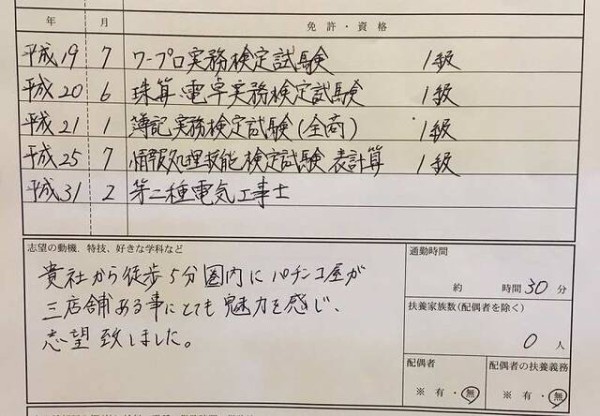 年 月 免許・資格
平成19 7 ワープロ実務検定試験 1級
平成20 6 珠算・電卓実務検定試験 1級
平成21 1 簿記実務検定試験(全商) 1級
平成25 7 情報処理技能検定試験 表計算 1級
平成31 2 第二種電気工事士
志望の動機、特技、好きな学科など
貴社から徒歩5分圏内にパチンコ屋が
三店舗ある事にとても魅力を感じ、
志望致しました。
通勤時間
約 時間 30 分
扶養家族数(配偶者を除く)
0 人
配偶者
※ 有・無
配偶者の扶養義務
※ 有・無